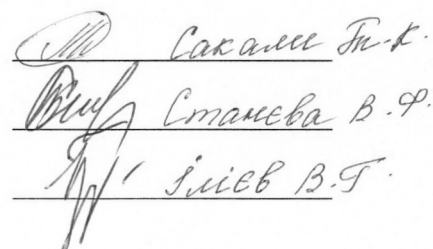 Сакали Гн. К.
Станєва В. Ф.
Ілієв В. Г.